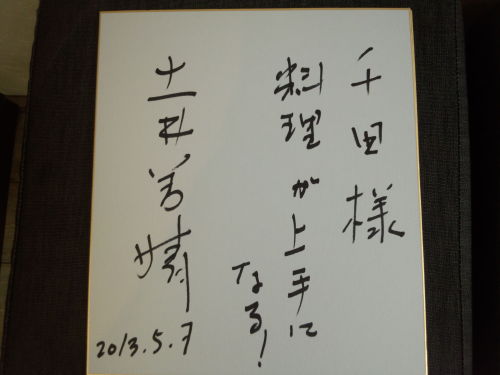 千田様
料理が上手に
なる!
土井善晴
2013.5.7